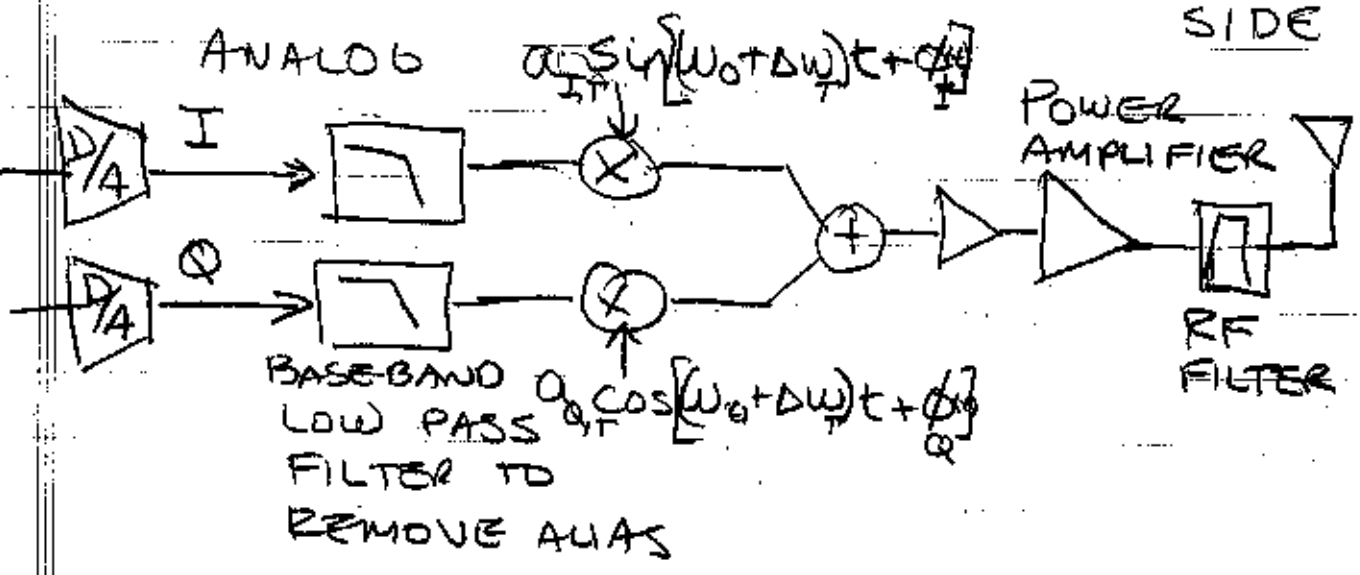 SIDE
ANALOG
a_{I,T} sin[(ω₀+Δω_T)t+ϕ_I]
POWER
AMPLIFIER
D/A
I
X
+
D/A
Q
X
RF
FILTER
BASE-BAND
LOW PASS
FILTER TO
REMOVE ALIAS
a_{Q,T} cos[(ω₀+Δω_T)t+ϕ_Q]